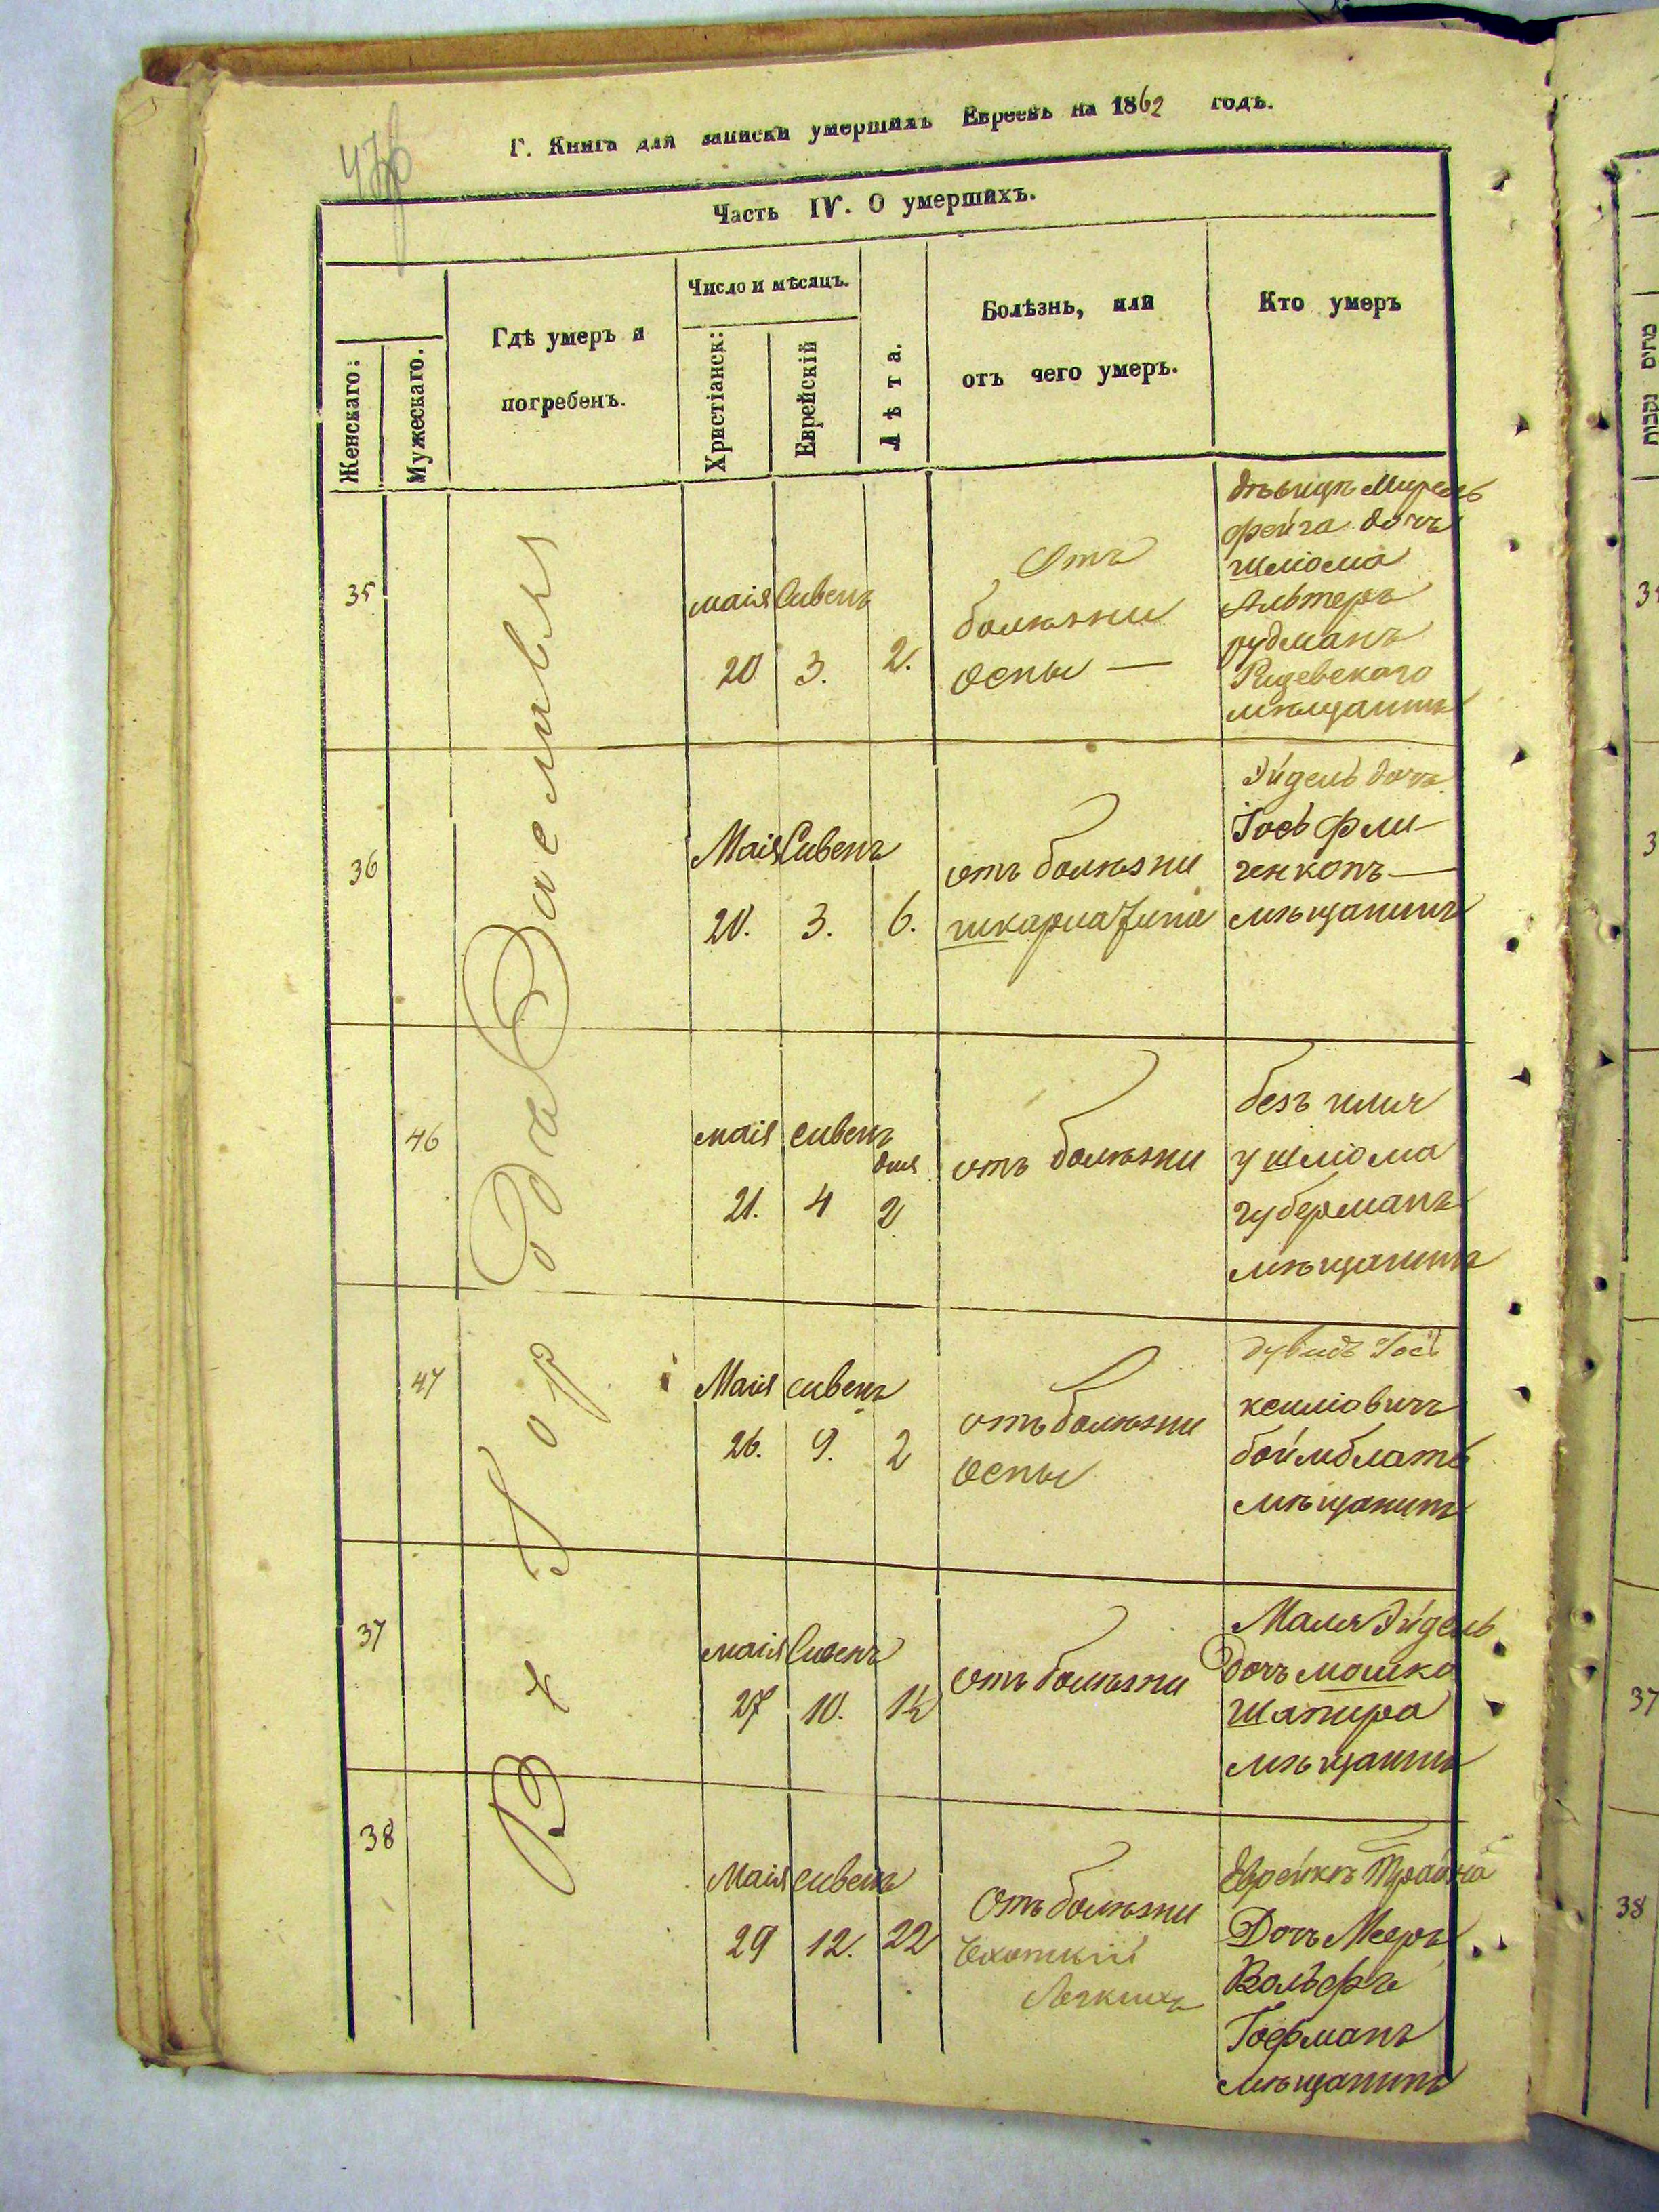 Г. Книга для записки умершихъ Евреевъ на 1862 годъ.
Часть IV. О умершихъ.
Женскаго:
Мужескаго.
Гдѣ умеръ и
погребенъ.
Число и мѣсяцъ.
Христіанск:
Еврейскій
Лѣта.
Болѣзнь, или
отъ чего умеръ.
Кто умеръ
Въ Города Василивы
35
маія Сивенъ
20 3. 2.
Отъ
болѣзни
оспы —
дѣвицѣ Мирель
фейга дочъ
шліома
Альтеръ
рудманъ
мѣщанинъ
36
Маія Сивенъ
20. 3. 6.
отъ болѣзни
шкарлатина
Эйдель дочъ
Іосъ фли-
генкопъ —
мѣщанинъ
46
маія сивенъ
дня
21. 4 2
отъ болѣзни
безъ имяч
у шліома
губерманъ
мѣщанинъ
47
Маія сивенъ
26. 9. 2
отъ болѣзни
оспы
дувидъ Іосъ
боймблатъ
мѣщанинъ
37
маія Сивенъ
27 10. 1½
отъ болѣзни
Маля Эйдель
дочъ мошко
Шапира
мѣщанинъ
38
Маія сивенъ
29 12. 22
Отъ болѣзни
Легкихъ
Еврейкѣ Трайна
Дочъ Мееръ
Вольфъ
Гофманъ
мѣщанинъ
37
38